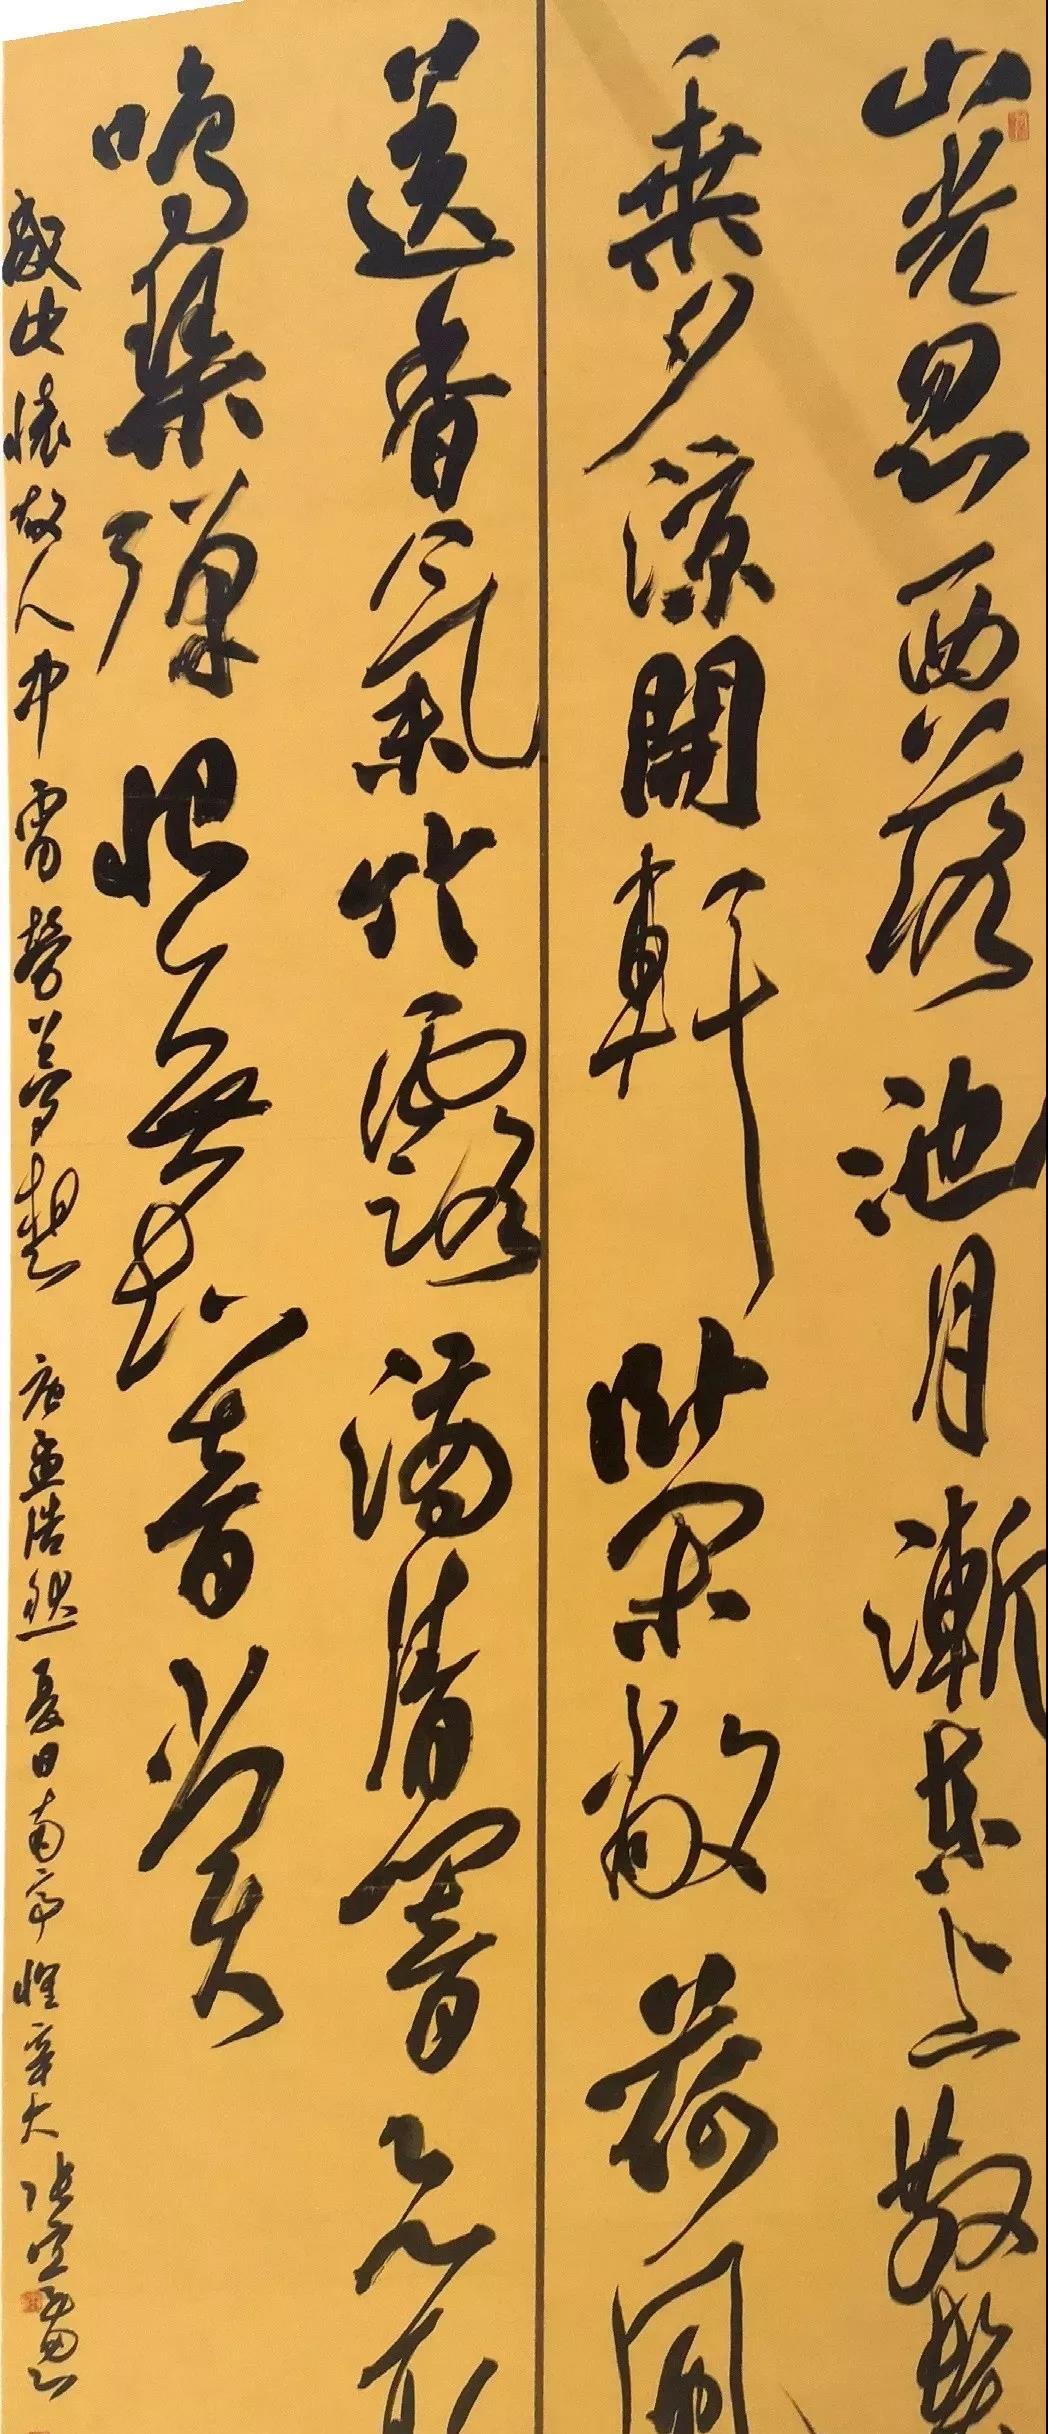 山光忽西落池月漸東上散髮
乘夕涼開軒臥閑敞荷風
送香氣竹露滴清響欲取
鳴琴彈恨無知音賞
感此懷故人中宵勞夢想 唐孟浩然夏日南亭懷辛大 張